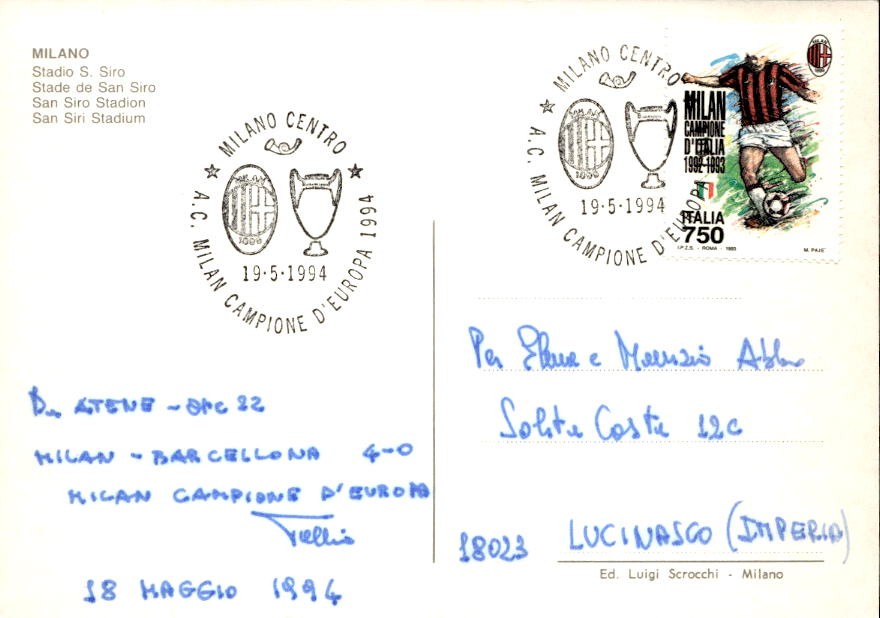 MILANO
Stadio S. Siro
Stade de San Siro
San Siro Stadion
San Siri Stadium
MILANO CENTRO
1899
19·5·1994
A.C. MILAN CAMPIONE D'EUROPA 1994
MILANO CENTRO
1899
19·5·1994
A.C. MILAN CAMPIONE D'EUROPA
MILAN
CAMPIONE
D'ITALIA
1992-1993
ITALIA
750
I.P.Z.S. - ROMA - 1993
M. PAJE'
Da ATENE - ORE 22
MILAN - BARCELLONA 4-0
MILAN CAMPIONE D'EUROPA
Tullio
18 MAGGIO 1994
Per Elena e Maurizio
Salita Costa 12c
18023 LUCINASCO (IMPERIA)
Ed. Luigi Scrocchi - Milano